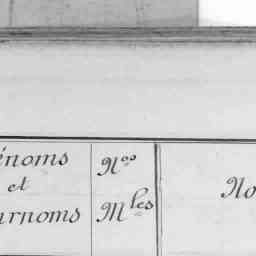 énoms
et
urnoms
Nos
Mles
No